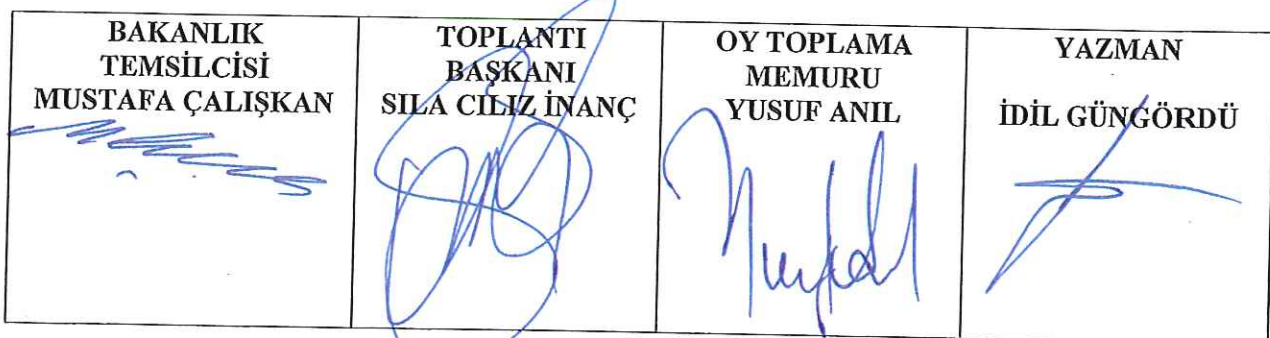 BAKANLIK
TEMSİLCİSİ
MUSTAFA ÇALIŞKAN
TOPLANTI
BAŞKANI
SILA CILIZ İNANÇ
OY TOPLAMA
MEMURU
YUSUF ANIL
YAZMAN
İDİL GÜNGÖRDÜ